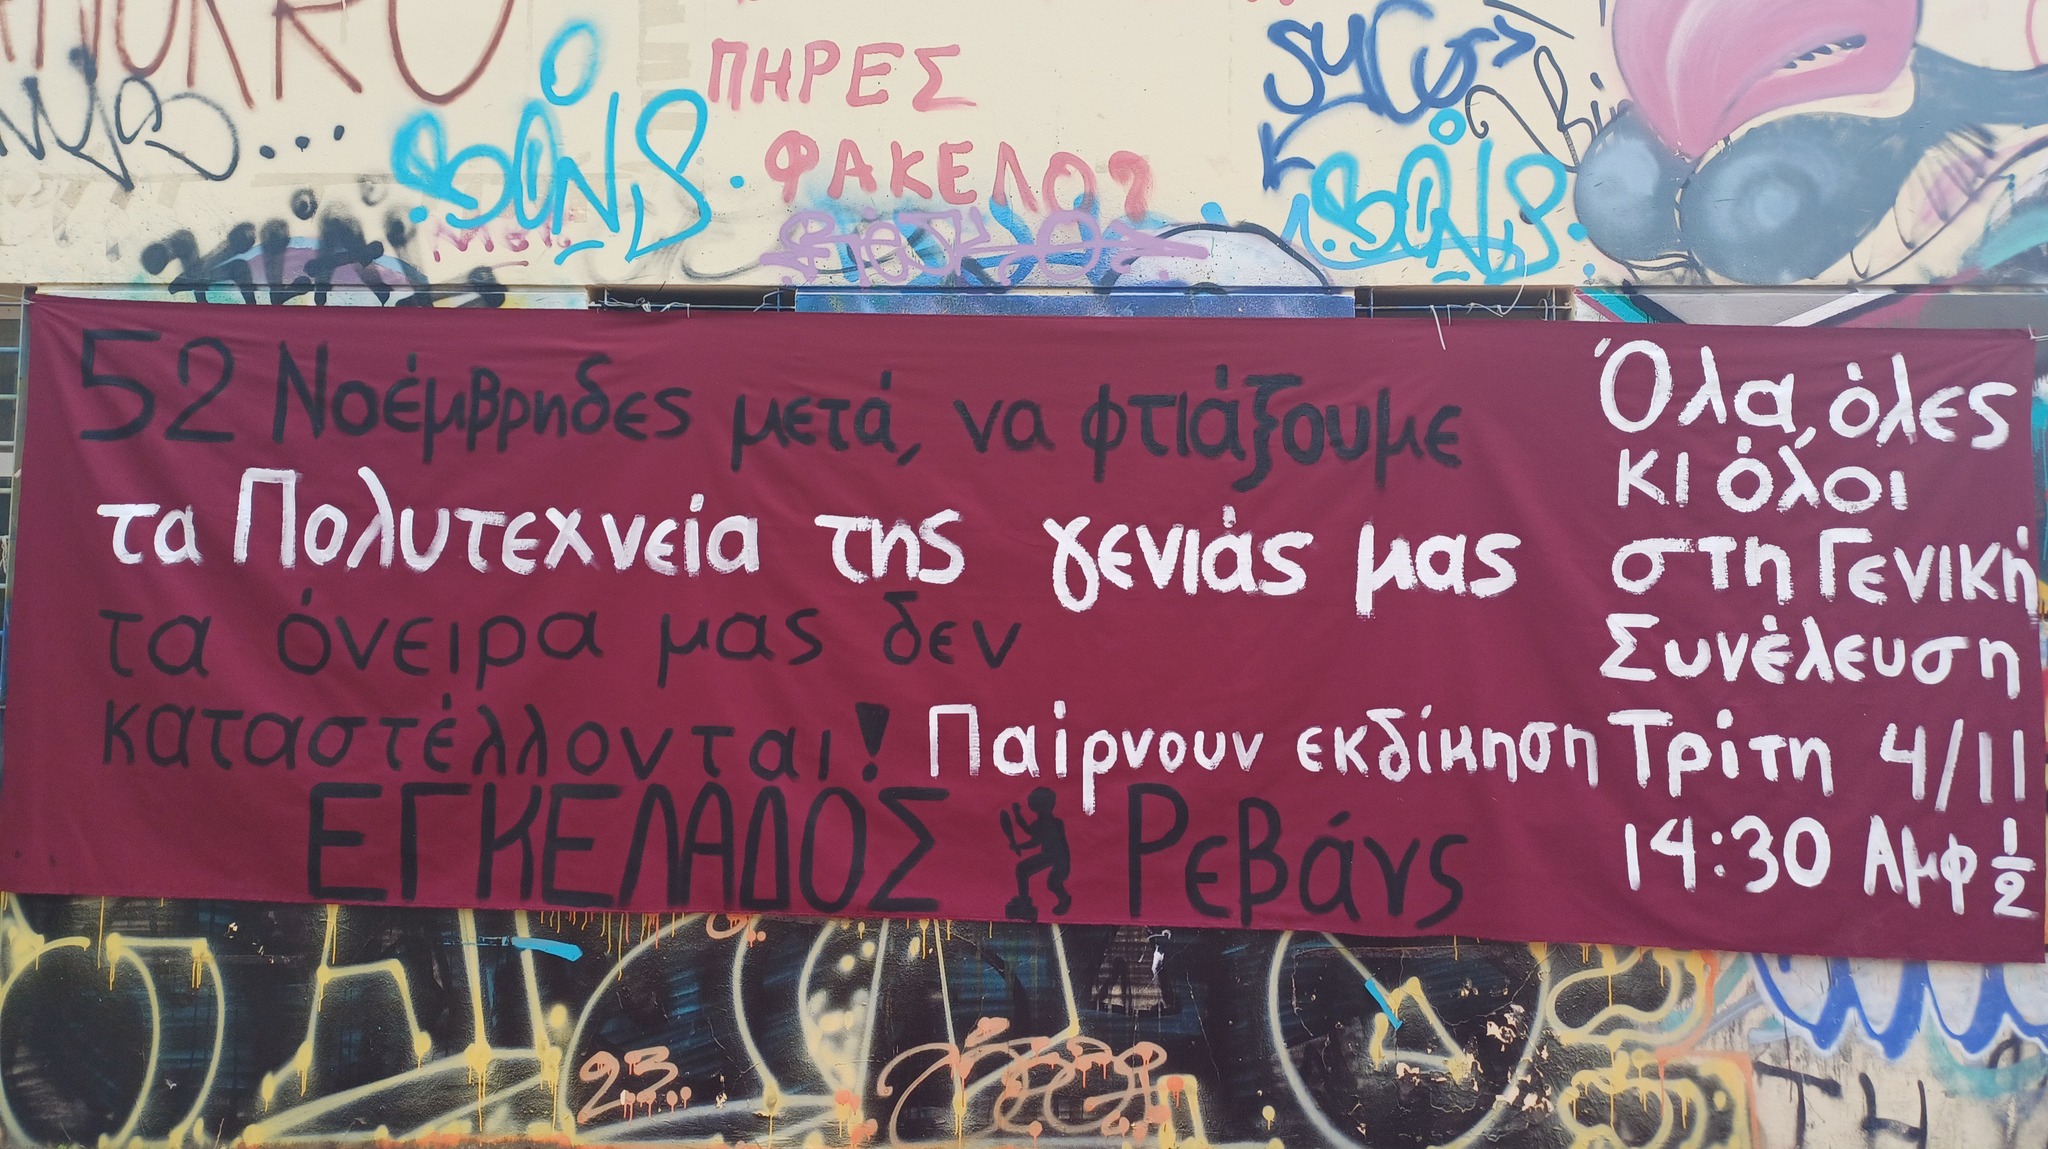 ΠΗΡΕΣ
ΦΑΚΕΛΟ?
52 Νοέμβρηδες μετά, να φτιάξουμε
τα Πολυτεχνεία της γενιάς μας
τα όνειρα μας δεν
καταστέλλονται! Παίρνουν εκδίκηση
ΕΓΚΕΛΑΔΟΣ Ρεβάνς
Όλα, όλες
κι όλοι
στη Γενική
Συνέλευση
Τρίτη 4/11
14:30 Αμφ 1/2
23.
ΤΗ